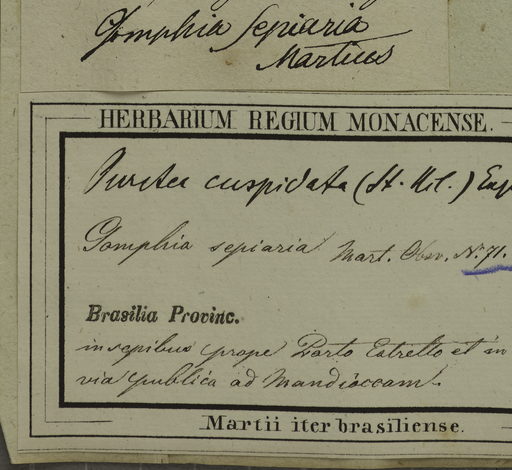 Gomphia sepiaria
Martius
HERBARIUM REGIUM MONACENSE.
Ouratea cuspidata (St. Hil.) Eng
Gomphia sepiaria Mart. Obsv. No. 71.
Brasilia Provinc.
in sepibus prope Porto Estrello et in
via publica ad Mandioccam.
Martii iter brasiliense.